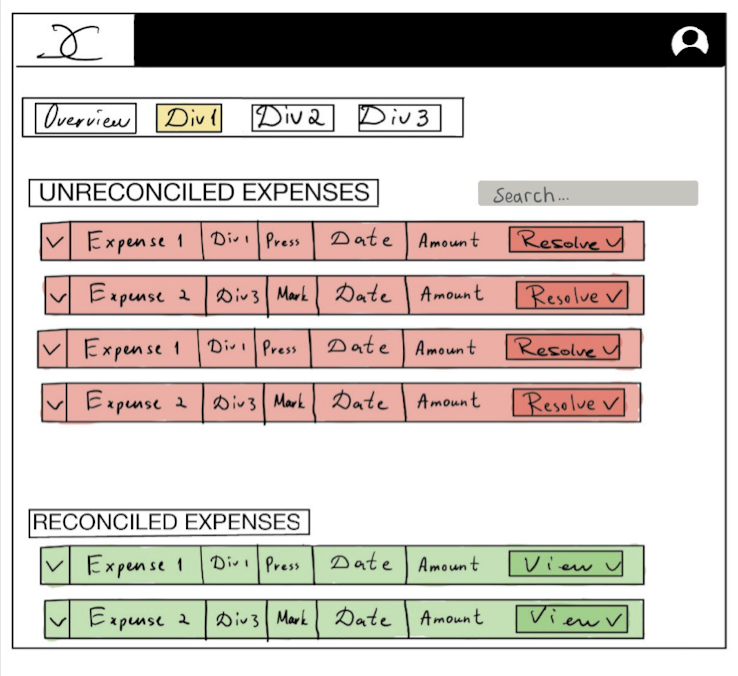 Overview Div 1 Div 2 Div 3
UNRECONCILED EXPENSES Search...
Expense 1 Div 1 Press Date Amount Resolve
Expense 2 Div 3 Mark Date Amount Resolve
Expense 1 Div 1 Press Date Amount Resolve
Expense 2 Div 3 Mark Date Amount Resolve
RECONCILED EXPENSES
Expense 1 Div 1 Press Date Amount View
Expense 2 Div 3 Mark Date Amount View